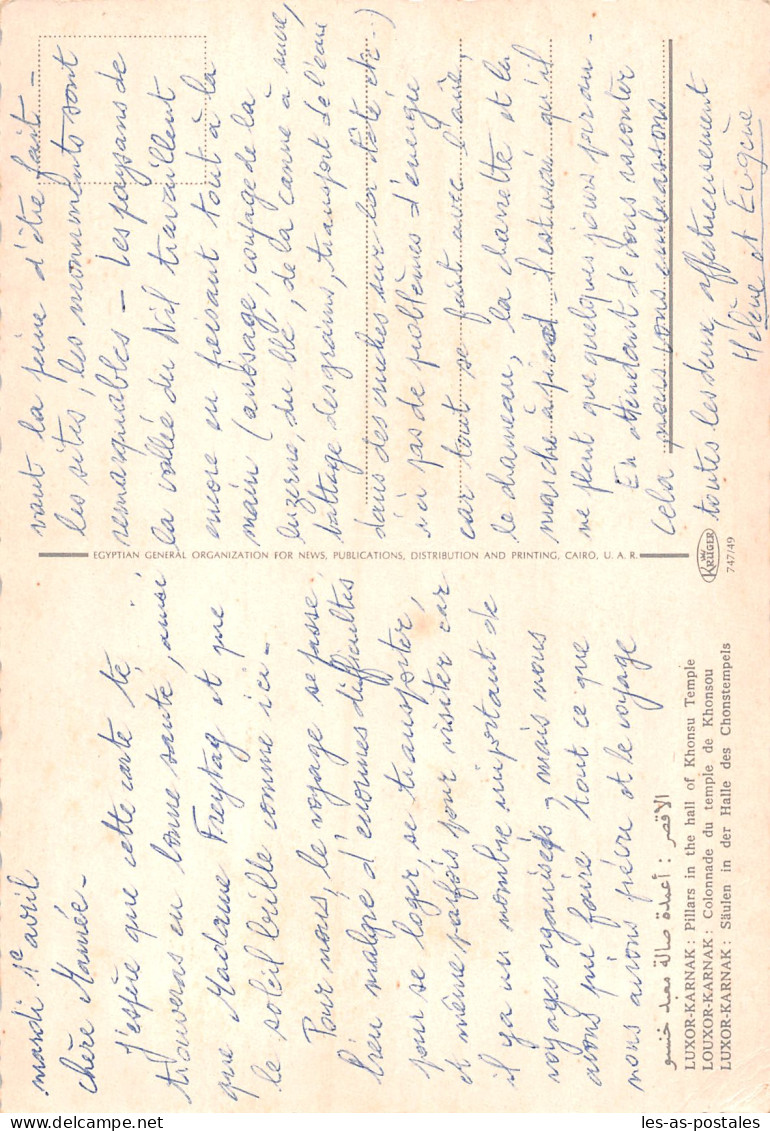 mardi 1e avril
chère Mamée -
J'espère que cette carte te
trouveras en bonne santé, ainsi
que Madame Freytag et que
le soleil brille comme ici -
Pour nous, le voyage se passe
bien malgré d'énormes difficultés
pour se loger, se transporter,
et même parfois pour visiter car
il y a un nombre important de
voyages organisés, mais nous
avons pu faire tout ce que
nous avions prévu et le voyage
الاقصر : أعمدة صالة معبد خنسو
LUXOR-KARNAK : Pillars in the hall of Khonsu Temple
LOUXOR-KARNAK : Colonnade du temple de Khonsou
LUXOR-KARNAK : Säulen in der Halle des Chonstempels
EGYPTIAN GENERAL ORGANIZATION FOR NEWS, PUBLICATIONS, DISTRIBUTION AND PRINTING, CAIRO, U. A. R.
KRÜGER
747/49
vaut la peine d'être fait. -
les sites, les monuments sont
remarquables - Les paysans de
la vallée du Nil travaillent
encore en faisant tout à la
main (arrosage, coupage de la
luzerne, du blé, de la canne à sucre,
battage des grains, transport de l'eau
dans des cruches sur la tête etc..)
ici pas de problèmes d'énergie
car tout se fait avec l'âne,
le chameau, la charrette et la
marche à pied. Il est vrai qu'il
ne pleut que quelques jours par an -
En attendant de vous raconter
cela nous vous embrassons
toutes les deux affectueusement
Hélène et Eugène
les-as-postales